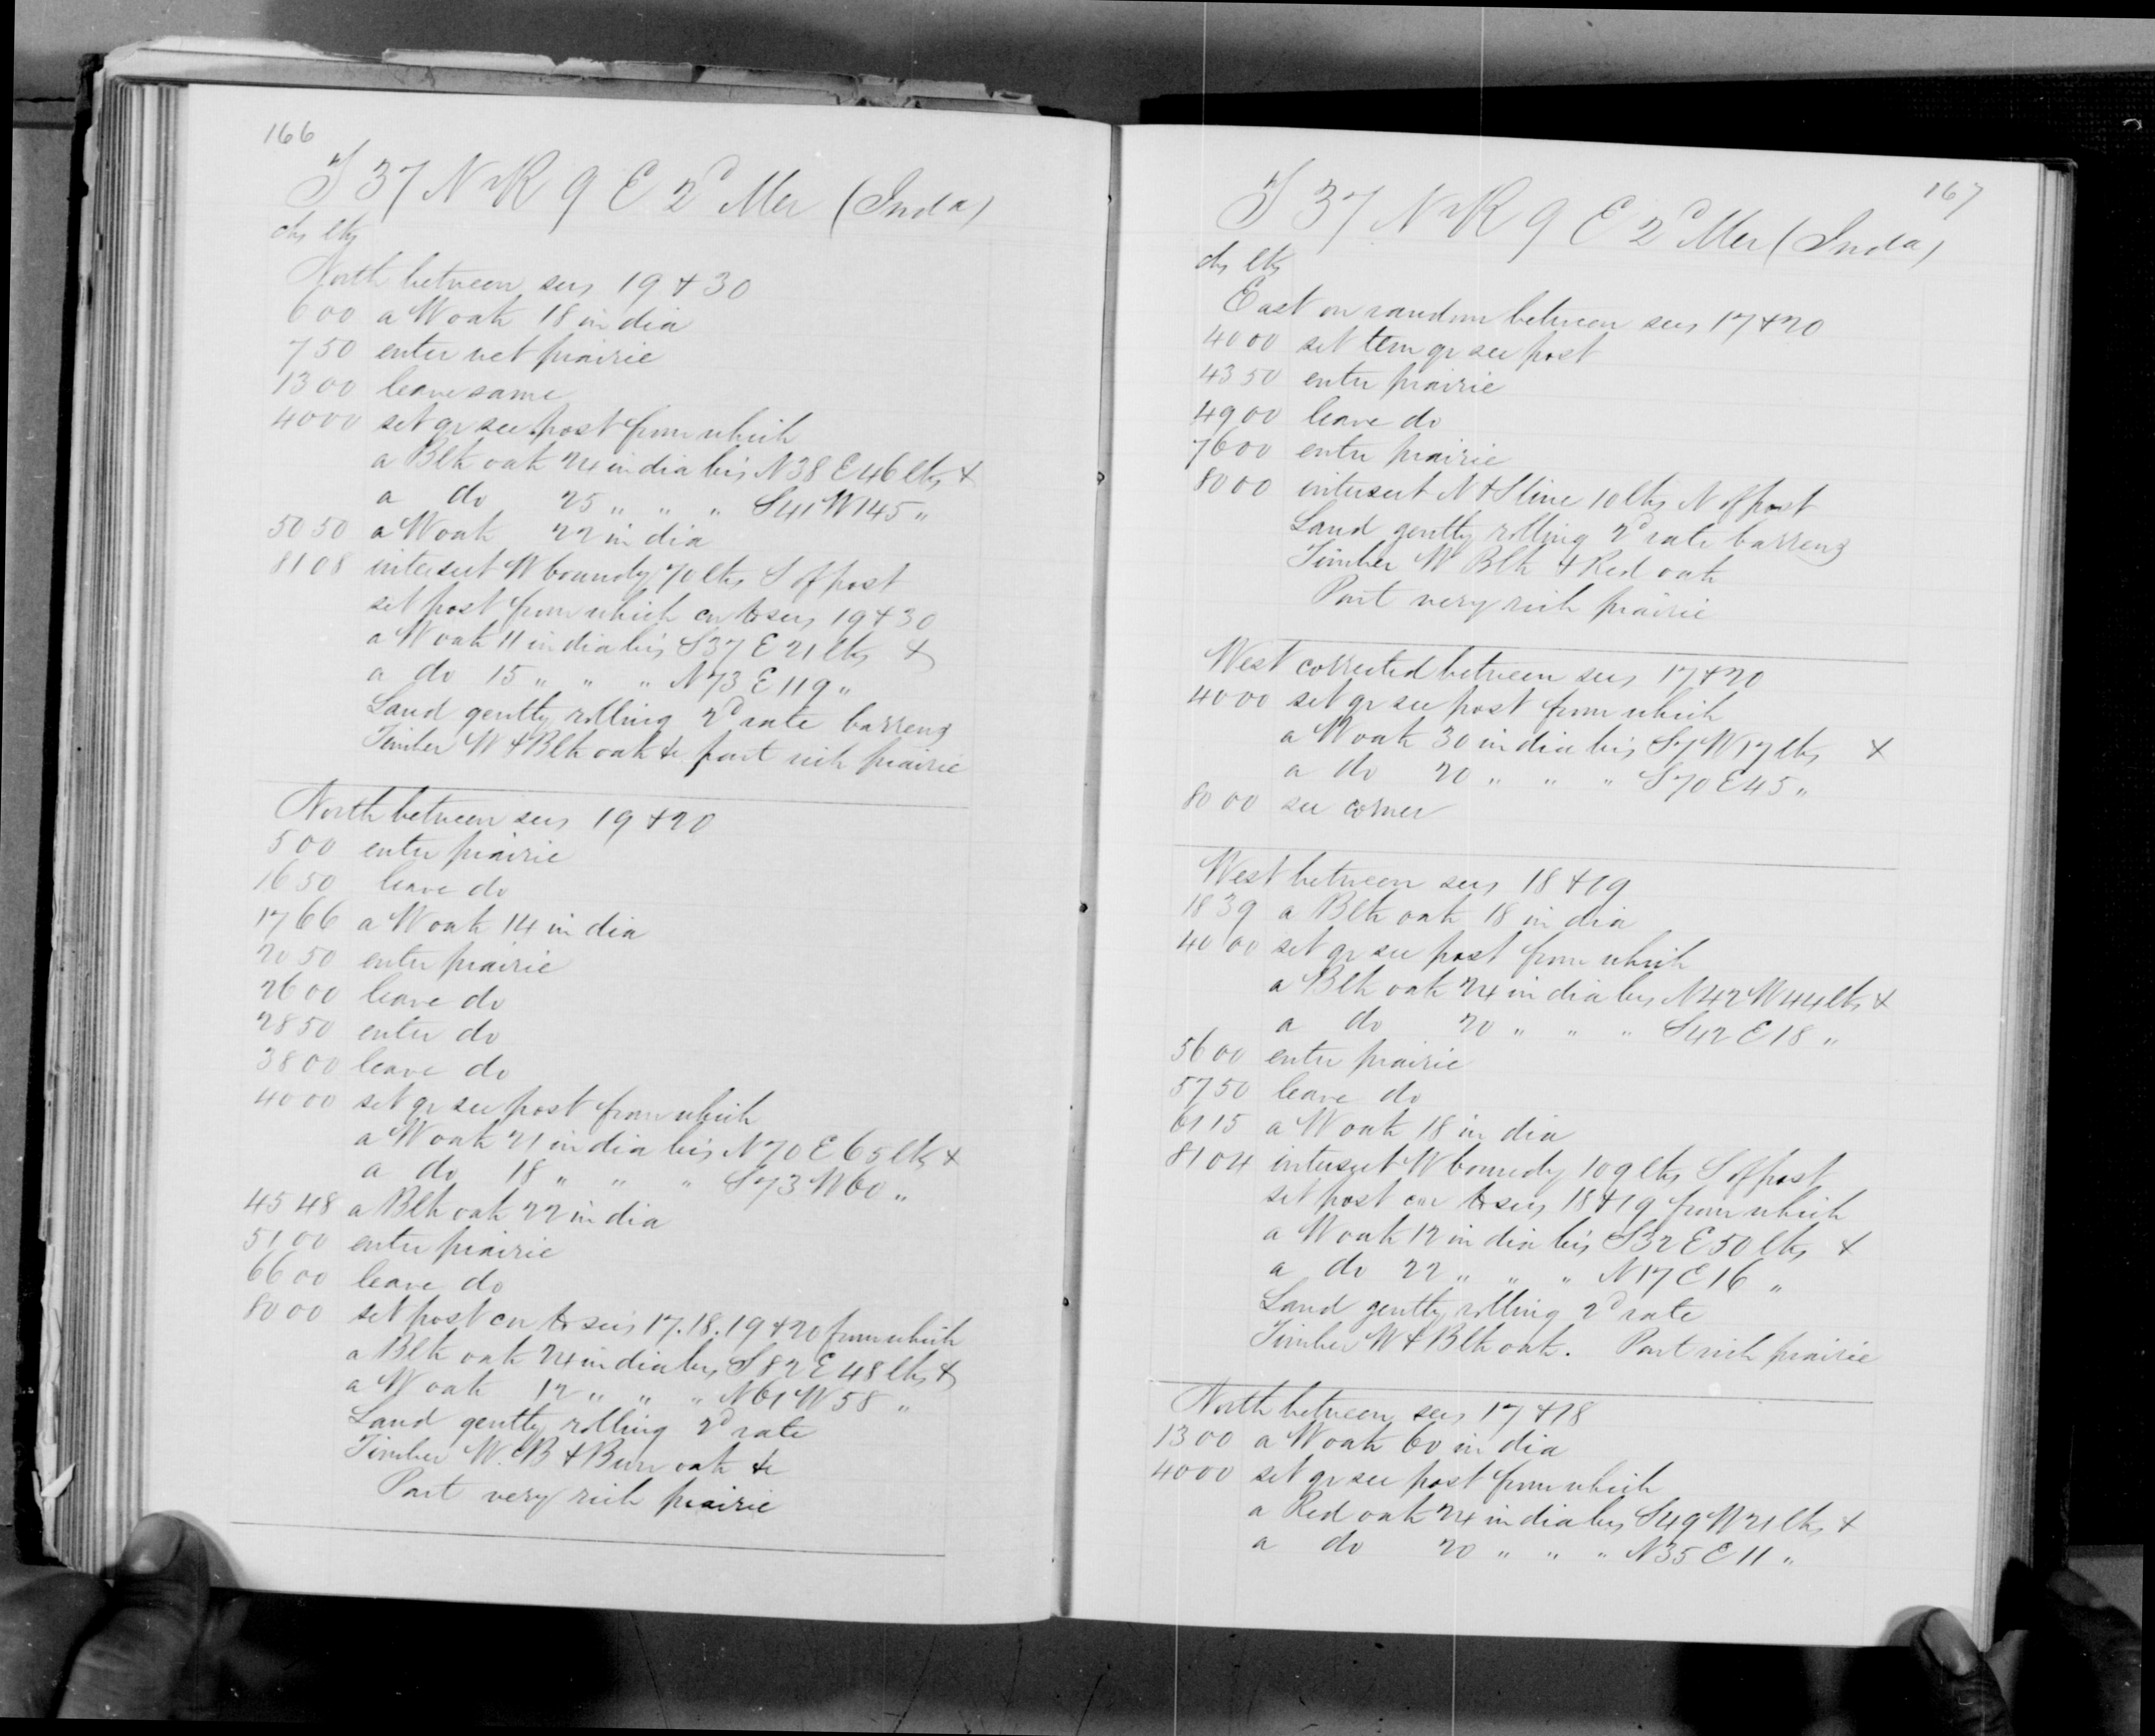 166
T 37 N R 9 E 2d Mer (Inda)
chs lks
North between secs 19 & 30
6 00 a W oak 18 in dia
7 50 enter wet prairie
13 00 leave same
40 00 set qr sec post from which
a Blk oak 24 in dia brs N 38 E 46 lks &
a do 25 " " " S 41 W 145 "
50 50 a W oak 22 in dia
81 08 intersect W boundy 70 lks S of post
set post from which cor to secs 19 & 30
a W oak 11 in dia brs S 37 E 21 lks &
a do 15 " " " N 73 E 119 "
Land gently rolling 2d rate barrens
Timber W & Blk oak &c part rich prairie
North between secs 19 & 20
5 00 enter prairie
16 50 leave do
17 66 a W oak 14 in dia
20 50 enter prairie
26 00 leave do
28 50 enter do
38 00 leave do
40 00 set qr sec post from which
a W oak 21 in dia brs N 70 E 65 lks &
a do 18 " " " S 73 W 60 "
45 48 a Blk oak 22 in dia
51 00 enter prairie
66 00 leave do
80 00 set post cor to secs 17. 18. 19 & 20 from which
a Blk oak 24 in dia brs S 82 E 48 lks &
a W oak 12 " " " N 61 W 58 "
Land gently rolling 2d rate
Timber W. B & Burr oak &c
Part very rich prairie
167
T 37 N R 9 E 2d Mer (Inda)
chs lks
East on random between secs 17 & 20
40 00 set tem qr sec post
43 50 enter prairie
49 00 leave do
76 00 enter prairie
80 00 intersect N & S line 10 lks N of post
Land gently rolling 2d rate barrens
Timber W Blk & Red oak
Part very rich prairie
West corrected between secs 17 & 20
40 00 set qr sec post from which
a W oak 30 in dia brs S 7 W 17 lks &
a do 20 " " " S 70 E 45 "
80 00 sec corner
West between secs 18 & 19
18 39 a Blk oak 18 in dia
40 00 set qr sec post from which
a Blk oak 24 in dia brs N 42 W 44 lks &
a do 20 " " " S 42 E 18 "
56 00 enter prairie
57 50 leave do
61 15 a W oak 18 in dia
81 04 intersect W boundy 109 lks S of post
set post cor to secs 18 & 19 from which
a W oak 12 in dia brs S 32 E 50 lks &
a do 22 " " " N 17 E 16 "
Land gently rolling 2d rate
Timber W & Blk oak. Part rich prairie
North between secs 17 & 18
13 00 a W oak 60 in dia
40 00 set qr sec post from which
a Red oak 24 in dia brs S 49 W 21 lks &
a do 20 " " " N 35 E 11 "